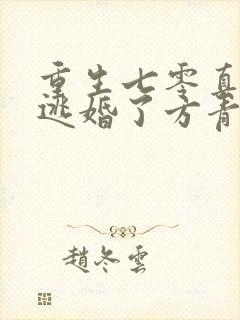 重生七零真
逃婚了方青
趙冬雲